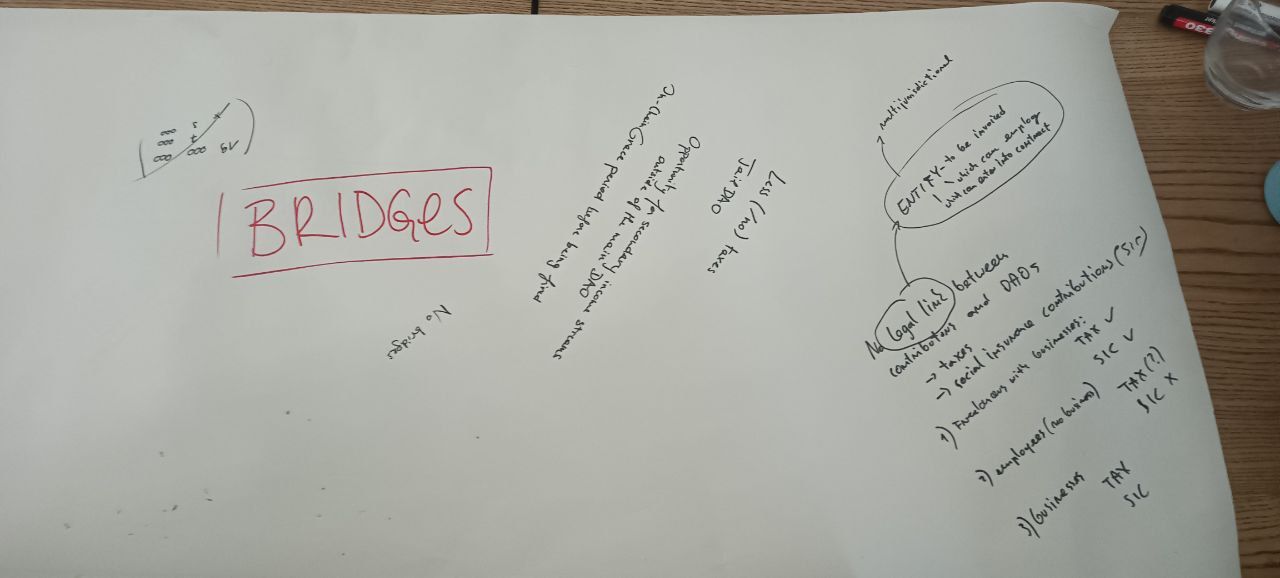 BRIDGES
No bridges
On-Chain Grace period before being fired
Opportunity for secondary income streams
outside of the main DAO
Jail DAO
Less (/no) taxes
multijurisdictional
ENTITY - to be invoiced
which can employ
which can enter into contract
No legal link between
contributors and DAOs
→ taxes
→ social insurance contributions (SIC)
1) Freelancers with businesses: TAX ✓
SIC ✓
2) employees (no business) TAX (?)
SIC X
3) businesses TAX
SIC